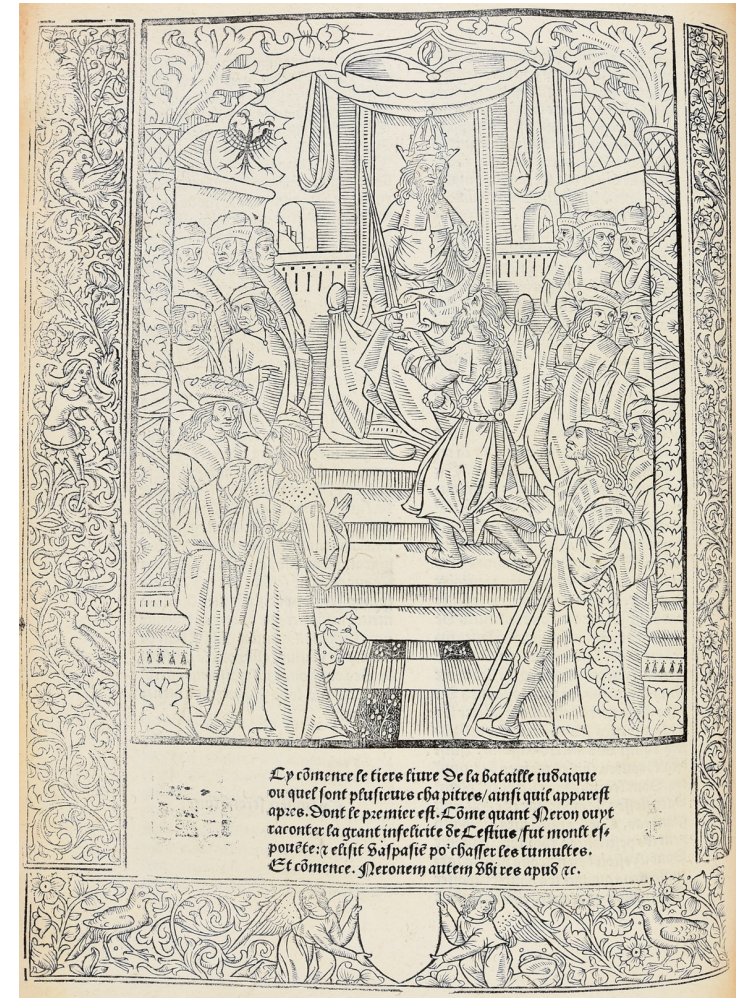 Cy cõmence le tiers liure De la bataille iudaique
ou quel sont plusieurs cha pitres/ainsi quil apparest
apres. Dont le premier est. Cõme quant Neron ouyt
raconter la grant infelicite de Cestius/fut moult es-
pouẽte:⁊ elisit Vaspasiẽ po' chasser les tumultes.
Et cõmence. Neronem autem Vbi res apud ⁊c.